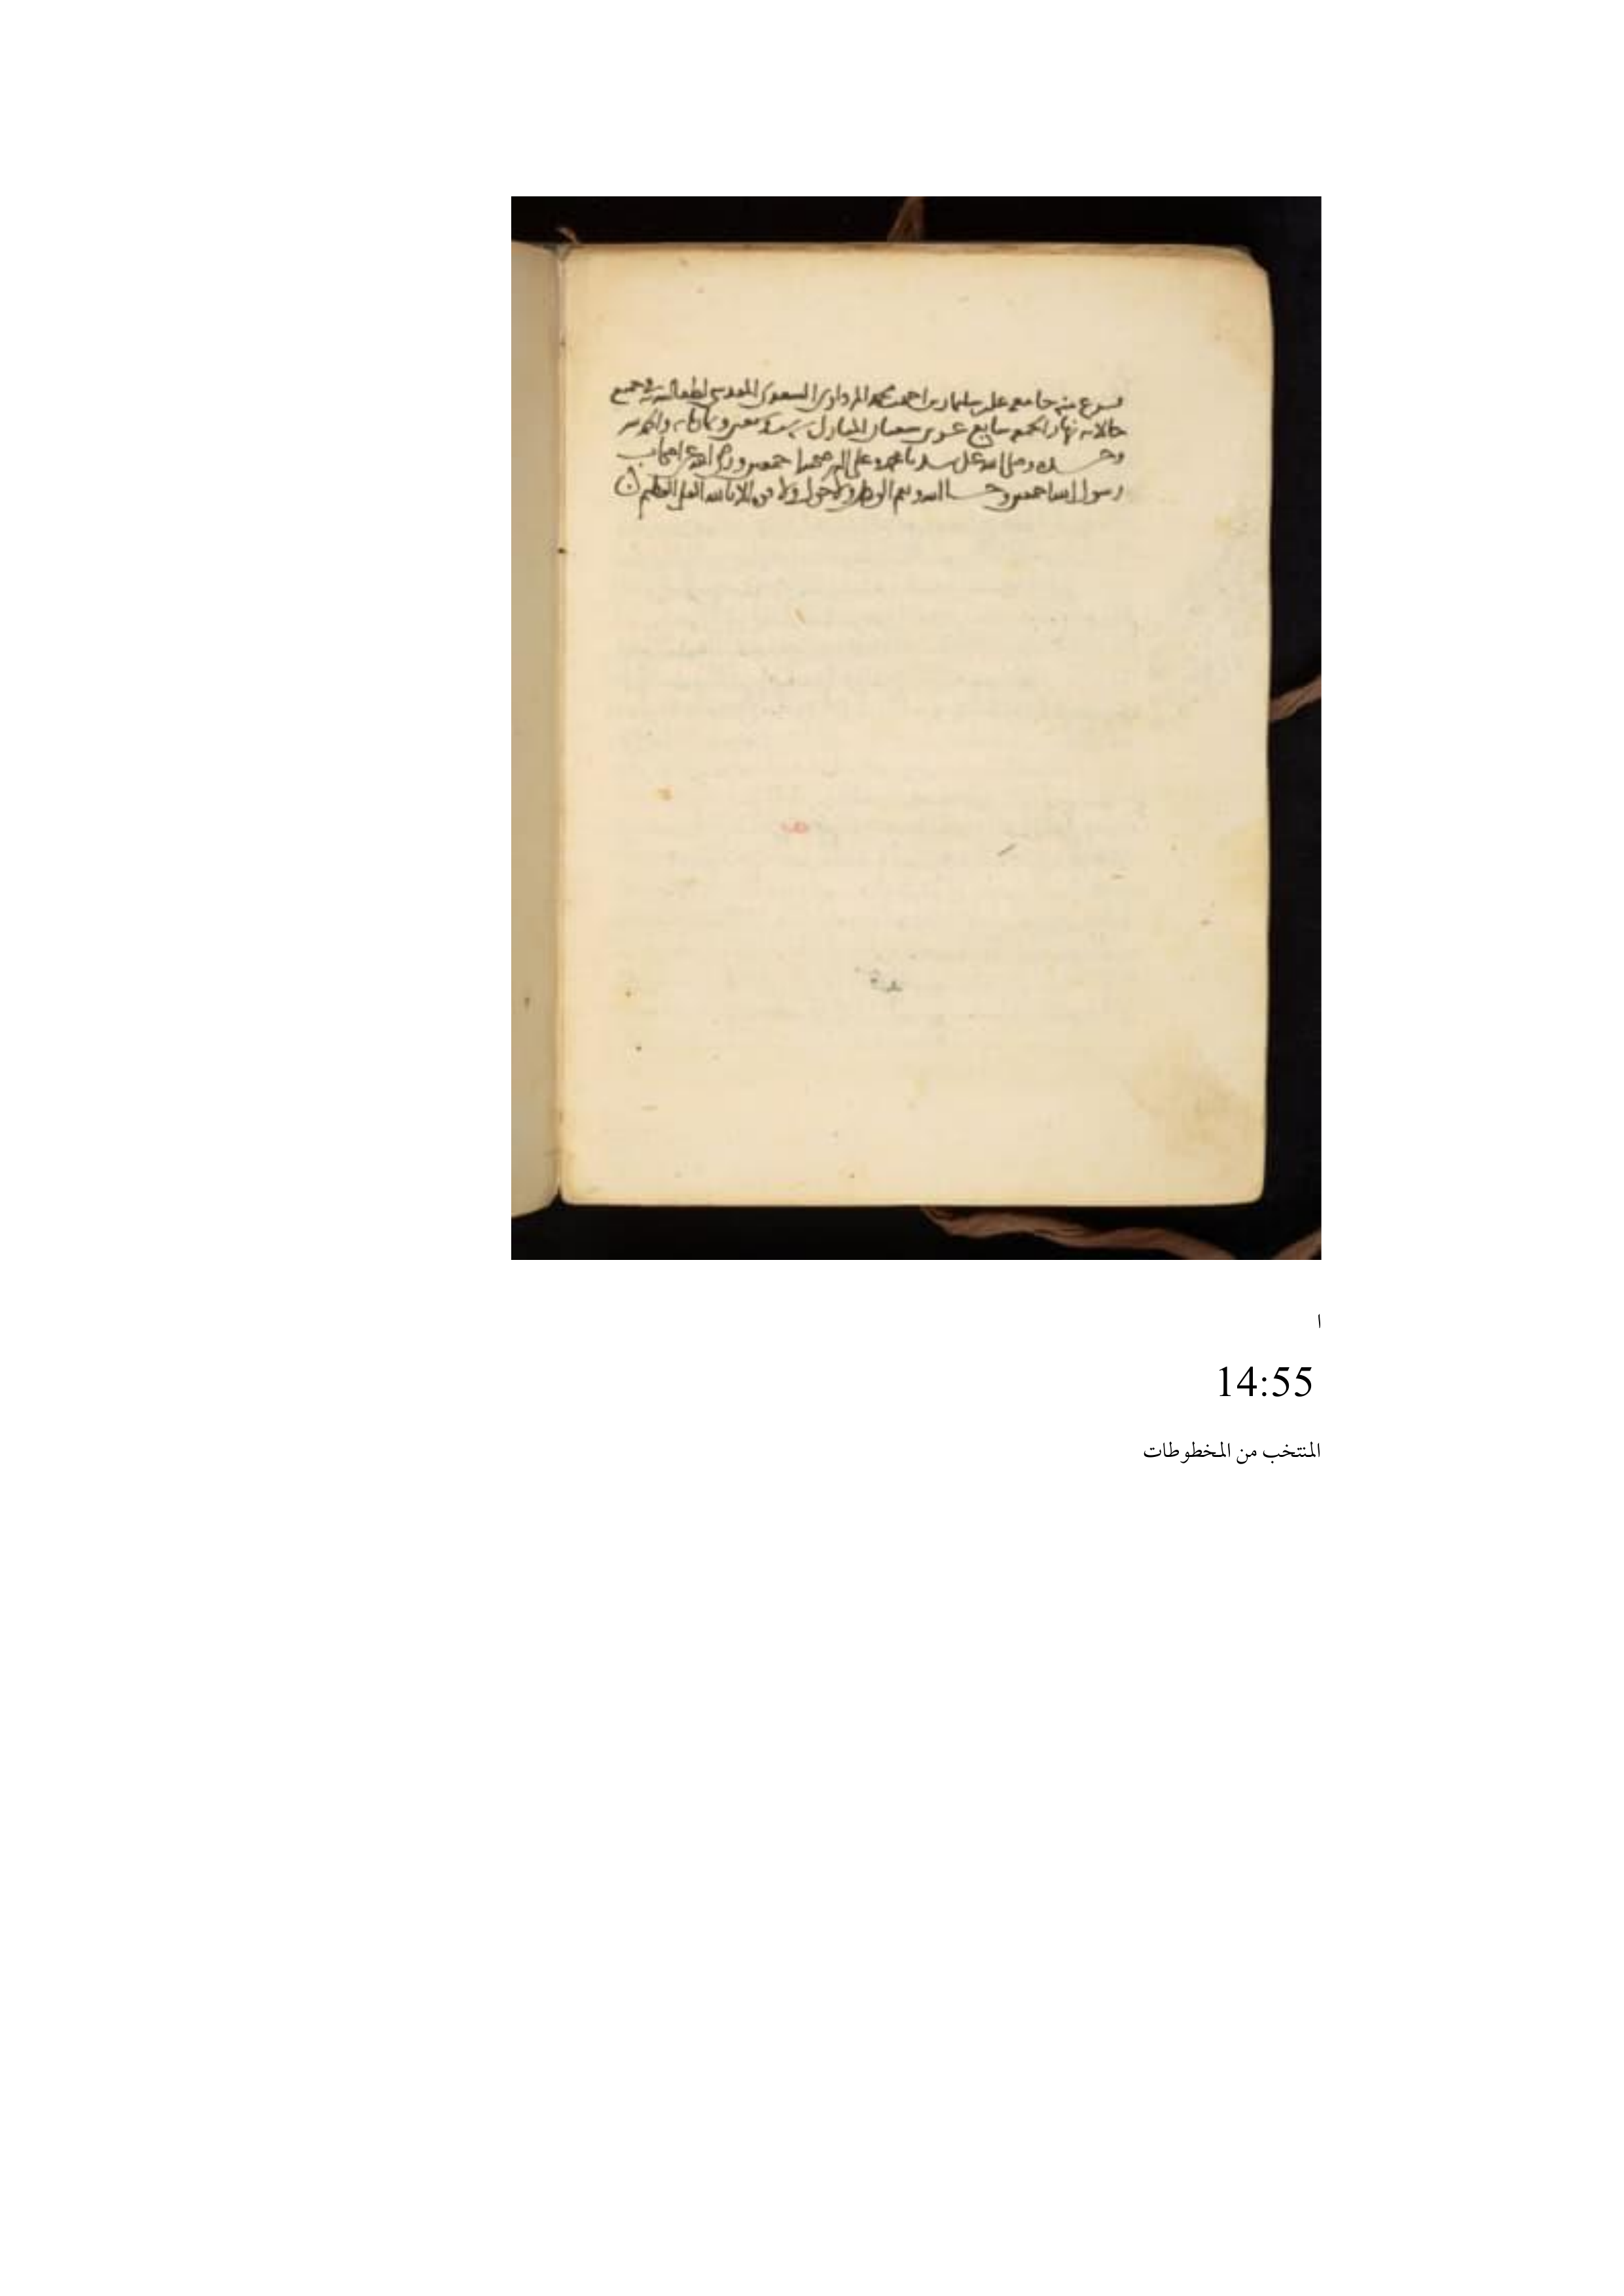 فرغ منه جامعه علي بن سليمان بن احمد بن محمد المرداوي السعدي المقدسي لطف الله به في جميع
حالاته نهار الجمعة سابع عشرين شعبان المبارك سنة وثمانمائة والحمد لله
وحده وصلى الله على سيدنا محمد وعلى اله وصحبه اجمعين ورضي الله عن اصحاب
رسول الله اجمعين وحسبنا الله ونعم الوكيل ولا حول ولا قوة الا بالله العلي العظيم
ا
14:55
المنتخب من المخطوطات